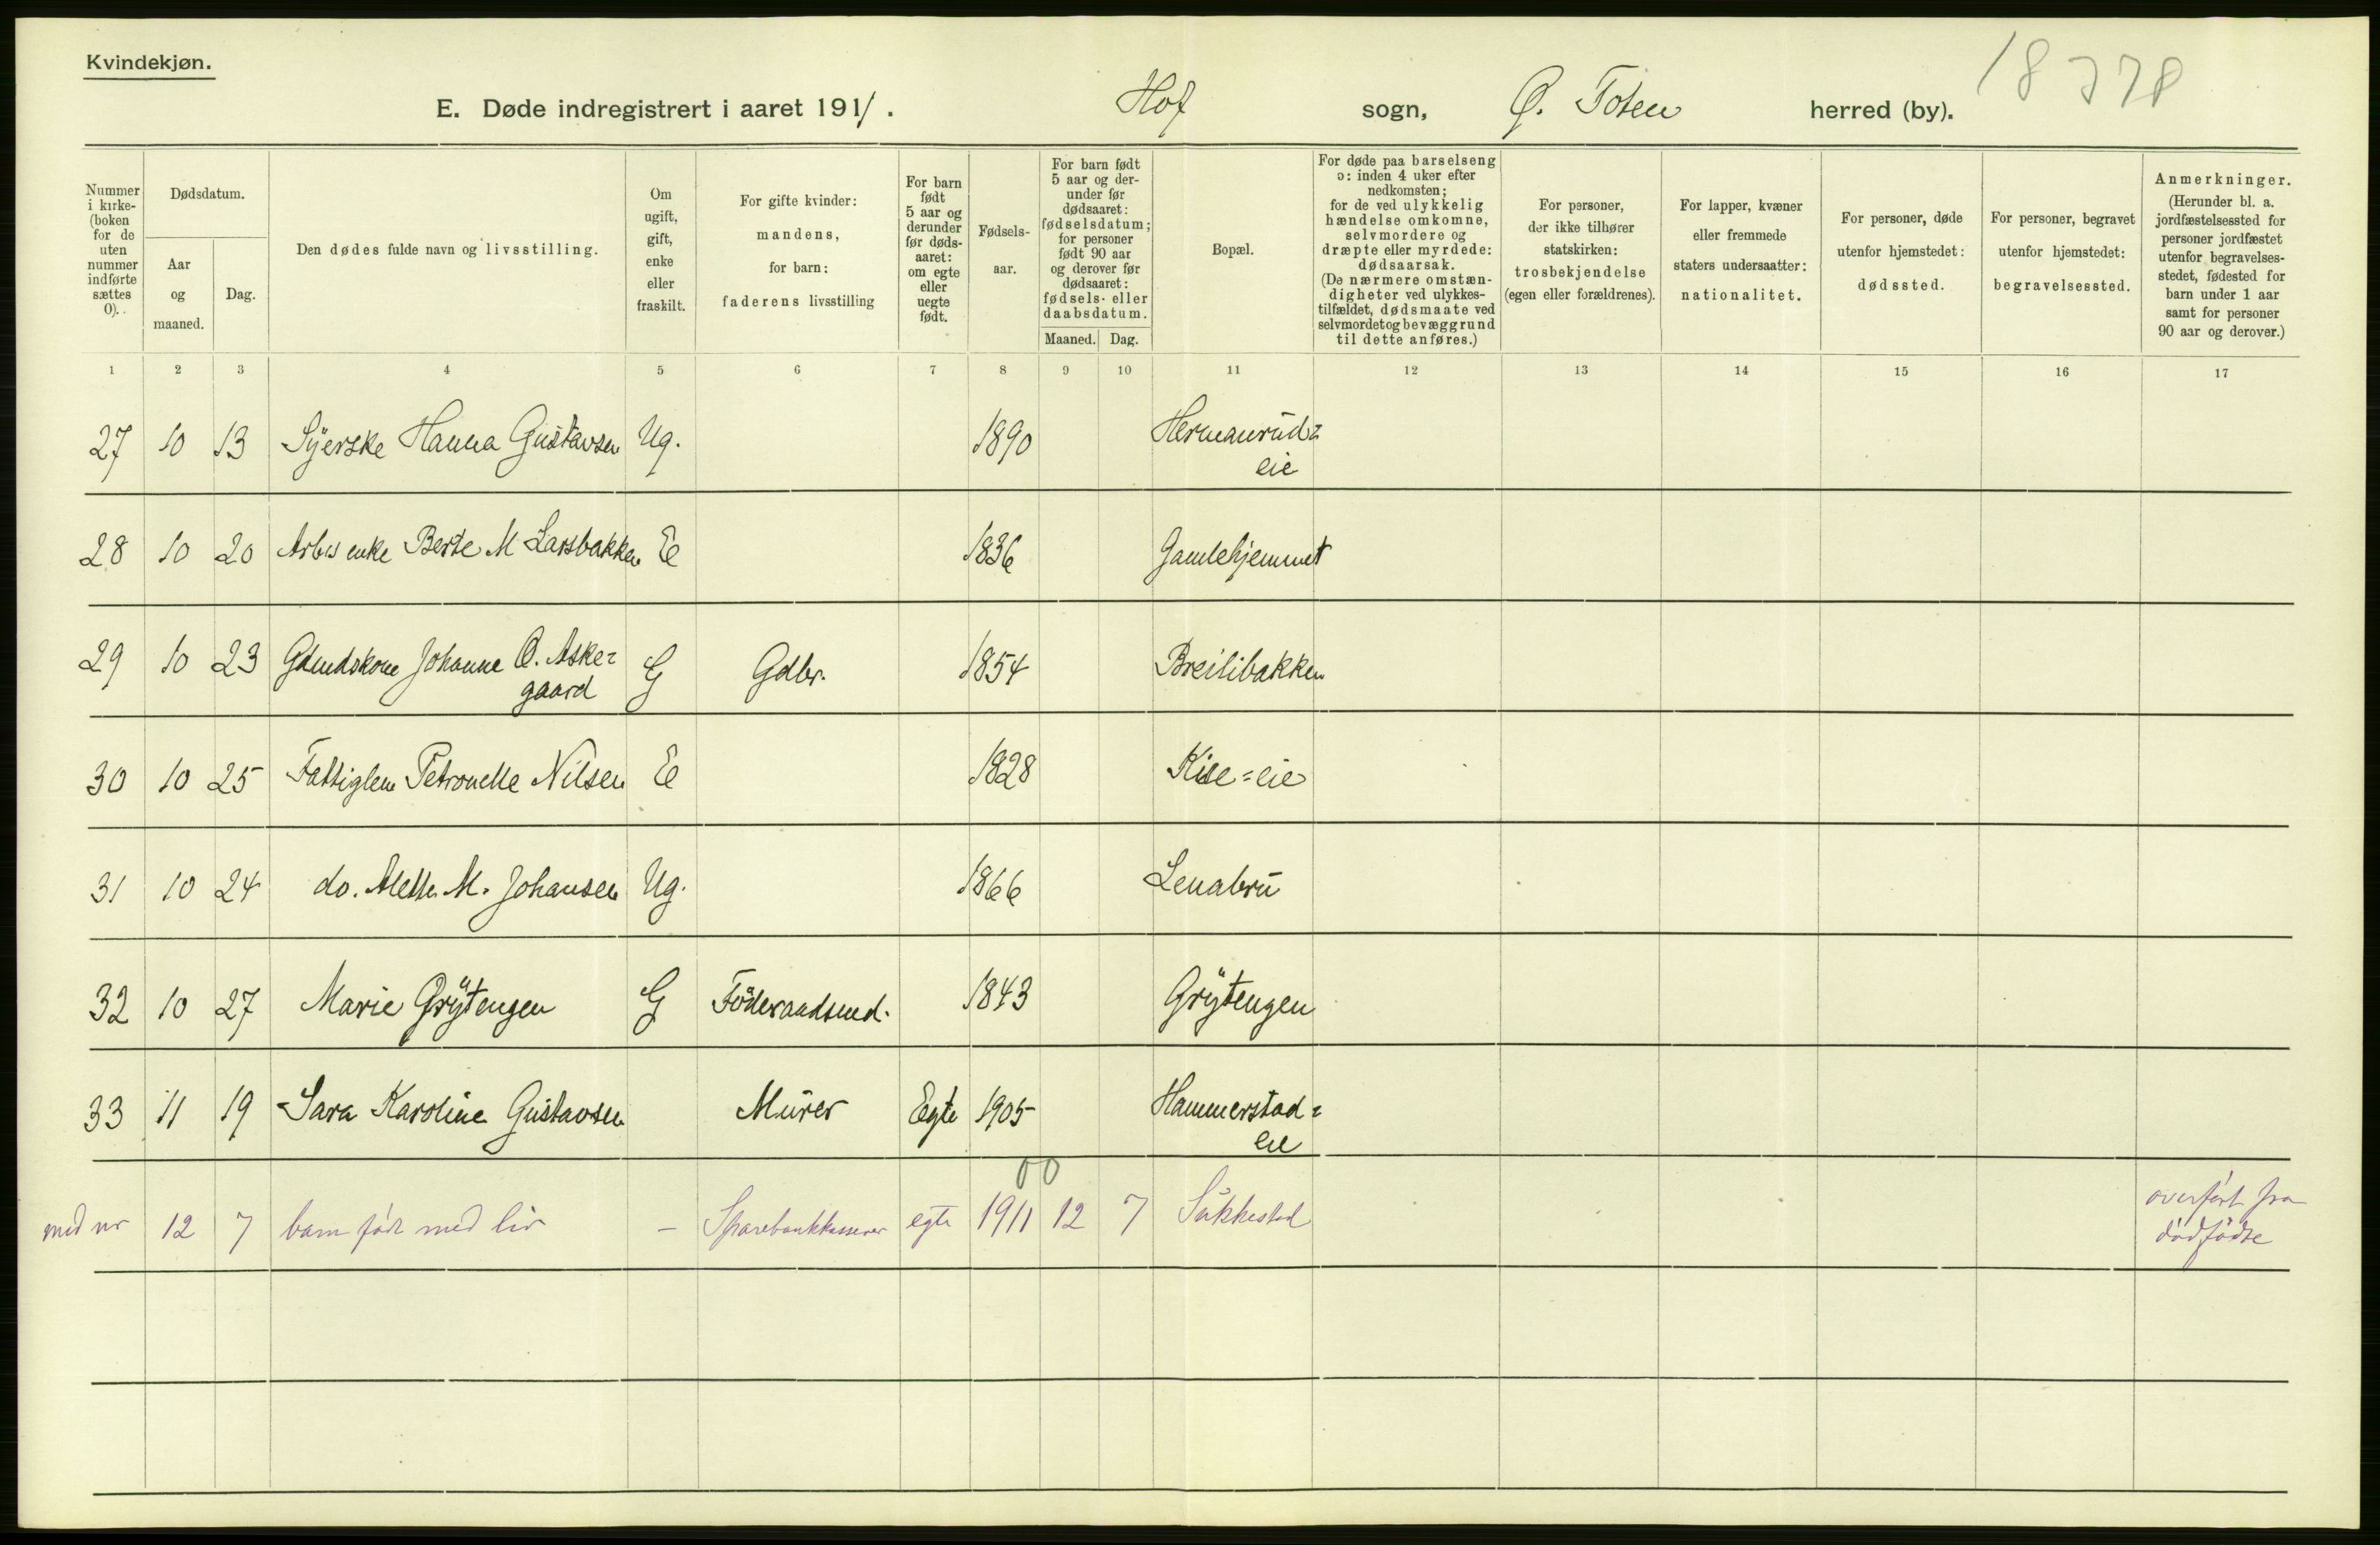 Kvindekjøn.
18 778
E. Døde indregistrert i aaret 1911. Hof sogn, Ø. Toten herred (by).
Nummer i kirke- (boken for de uten nummer indførte sættes 0).
Dødsdatum.
Aar og maaned.
Dag.
Den dødes fulde navn og livsstilling.
Om ugift, gift, enke eller fraskilt.
For gifte kvinder: mandens, for barn: faderens livsstilling
For barn født 5 aar og derunder før døds- aaret: om egte eller uegte født.
Fødsels- aar.
For barn født 5 aar og der- under før dødsaaret: fødselsdatum; for personer født 90 aar og derover før dødsaaret: fødsels- eller daabsdatum.
Maaned. Dag.
Bopæl.
For døde paa barselseng ɔ: inden 4 uker efter nedkomsten; for de ved ulykkelig hændelse omkomne, selvmordere og dræpte eller myrdede: dødsaarsak. (De nærmere omstæn- digheter ved ulykkes- tilfældet, dødsmaate ved selvmordet og bevæggrund til dette anføres.)
For personer, der ikke tilhører statskirken: trosbekjendelse (egen eller forældrenes).
For lapper, kvæner eller fremmede staters undersaatter: nationalitet.
For personer, døde utenfor hjemstedet: dødssted.
For personer, begravet utenfor hjemstedet: begravelsessted.
Anmerkninger. (Herunder bl. a. jordfæstelsessted for personer jordfæstet utenfor begravelses- stedet, fødested for barn under 1 aar samt for personer 90 aar og derover.)
1 2 3 4 5 6 7 8 9 10 11 12 13 14 15 16 17
27 10 13 Syerske Hanna Gustavsen Ug. 1890 Hermanrud=
eie
28 10 20 Arbs enke Berte M Larsbakken E 1836 Gamlehjemmet
29 10 23 Gdmdskone Johanne O. Aske=
gaard G Gdbr. 1854 Breilibakken
30 10 25 Fattiglem Petronelle Nilsen E 1828 Kise=eie
31 10 24 do. Mette M. Johansen Ug. 1866 Lenabru
32 10 27 Marie Grytengen G Föderaadsmd. 1843 Grytengen
33 11 19 Sara Karoline Gustavsen Murer Egte 1905 Hammerstad=
eie
00
med nr 12 7 barn født med liv - Sparebankkasserer egte 1911 12 7 Sukkestad overført fra
dødfødte